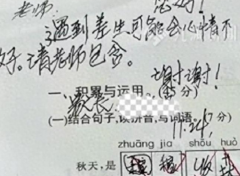 老师:
您好!
遇到差生可能会心情不
好。请老师包含。
谢谢!
一、积累与运用。
家长
(一)结合句子,读拼音,写词语。
11.24
zhuāng jia shōu huò
秋天,是